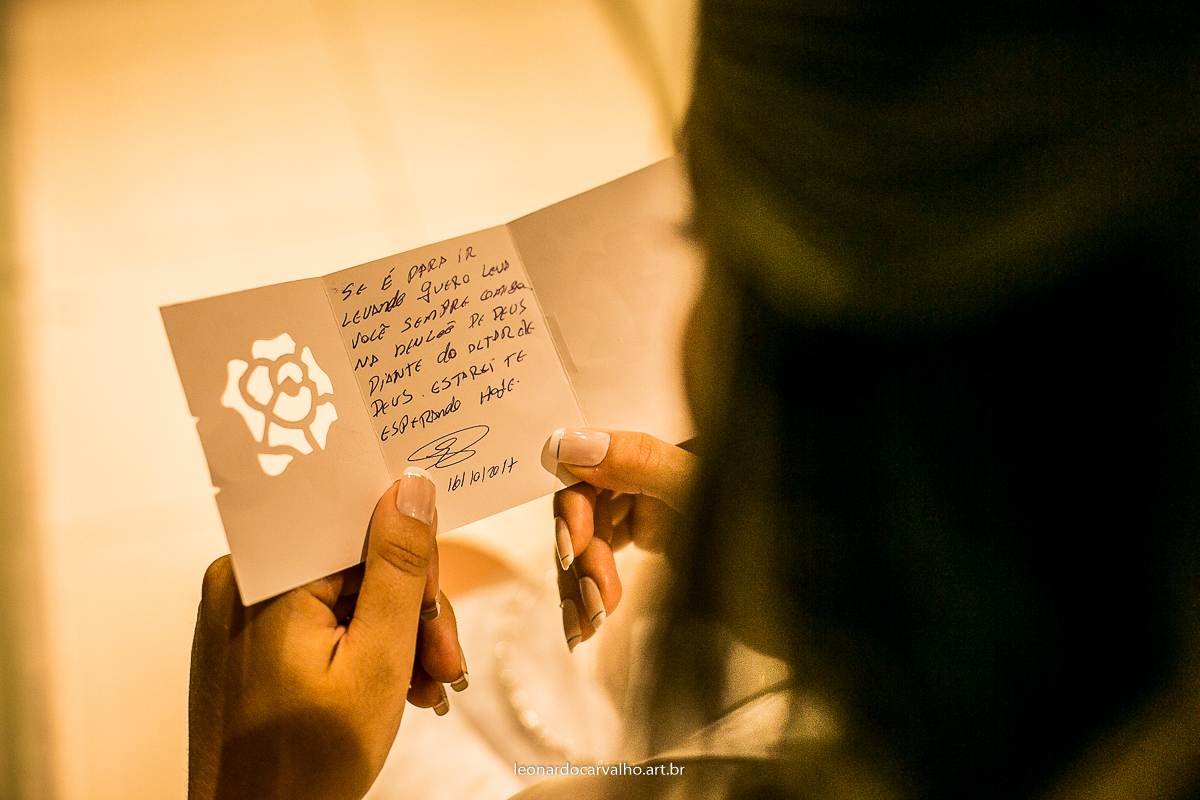 SE É PARA IR
LEVANDO QUERO LEVA
VOCÊ SEMPRE COMIGO
NA BENÇÃO DE DEUS
DIANTE DO ALTAR DE
DEUS. ESTAREI TE
ESPERANDO HOJE.
16/10/2017
leonardocarvalho.art.br